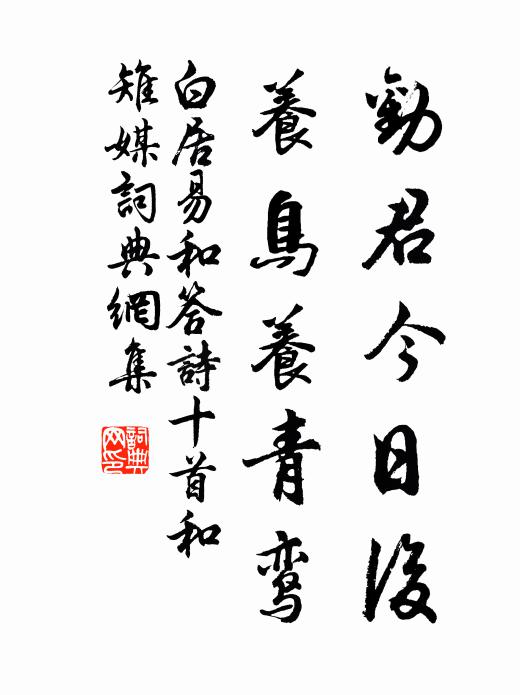 勸君今日後
養鳥養青鸾
白居易和答詩十首和
雉媒詞典網集
詞典网印